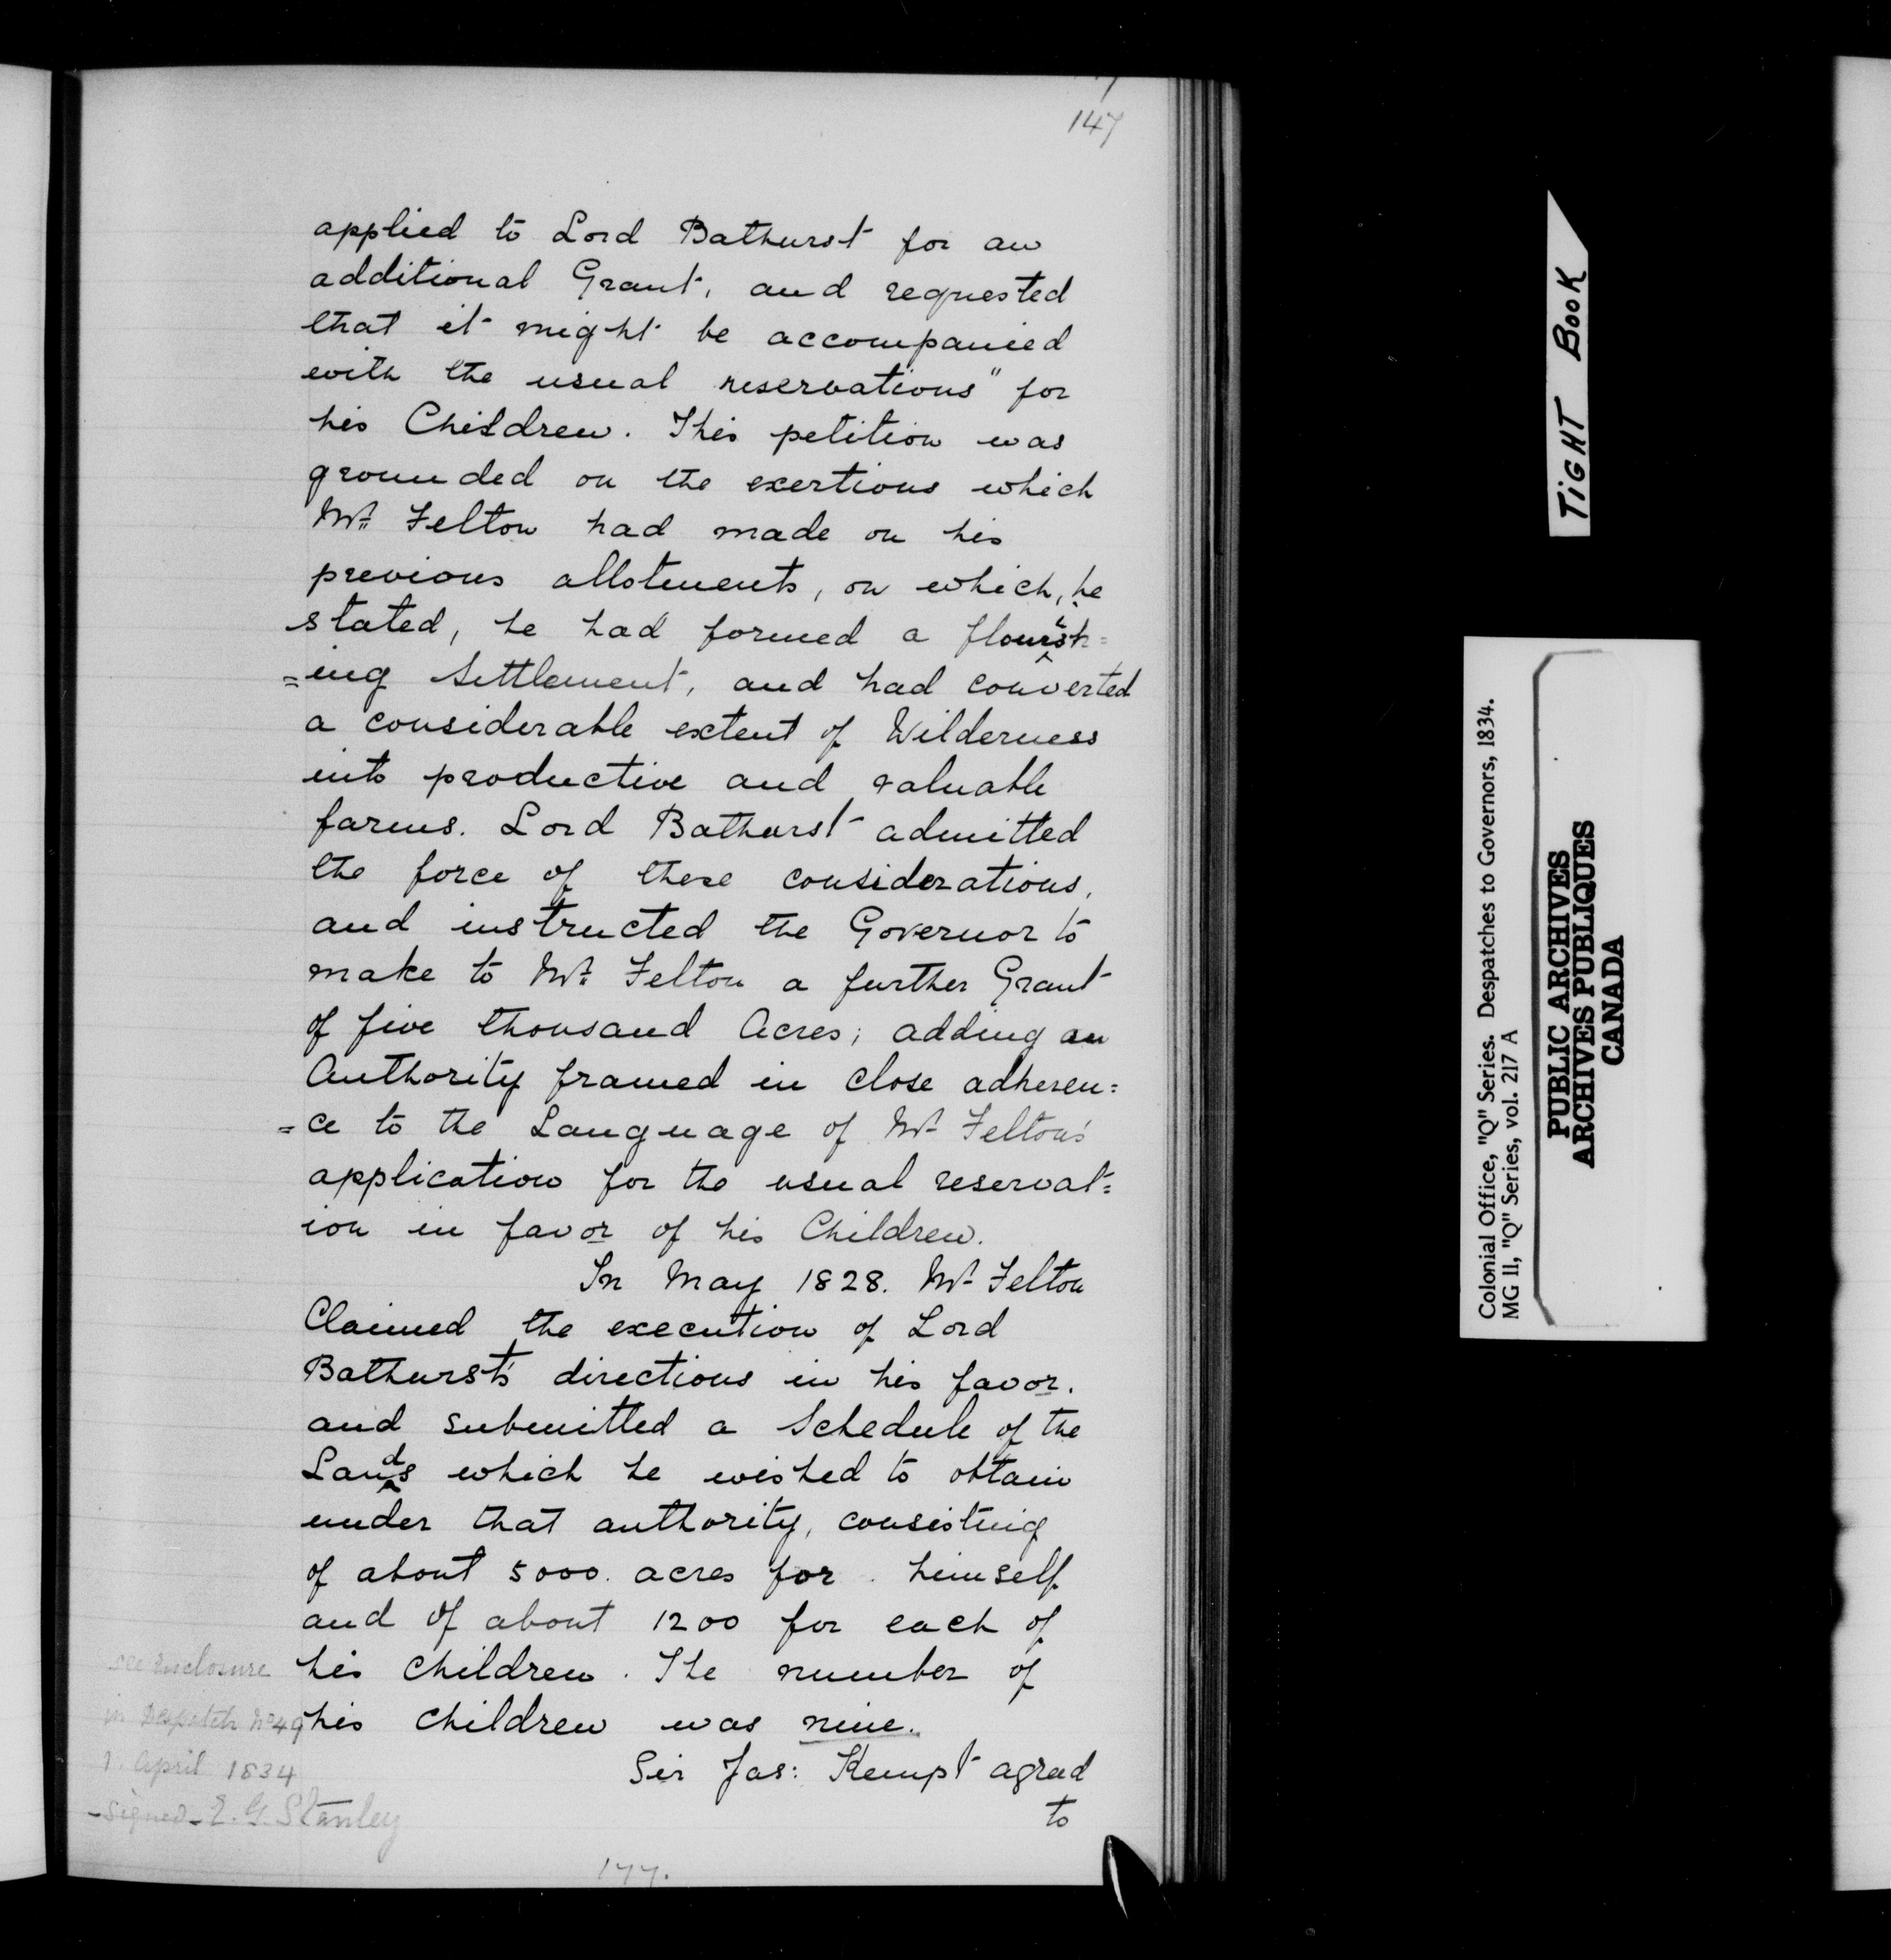 147
applied to Lord Bathurst for an
additional Grant, and requested
that it might be accompanied
with the usual reservations" for
his Children. This petition was
grounded on the exertions which
Mr. Felton had made on his
previous allotments, on which, he
stated, he had formed a flourish=
=ing Settlement, and had converted
a considerable extent of Wilderness
into productive and valuable
farms. Lord Bathurst admitted
the force of these considerations,
and instructed the Governor to
make to Mr. Felton a further Grant
of five thousand Acres; adding an
Authority framed in close adheren=
=ce to the Language of Mr. Felton's
application for the usual reservat=
ion in favor of his Children.
In May 1828. Mr. Felton
Claimed the execution of Lord
Bathurst's directions in his favor.
and submitted a Schedule of the
Lands which he wished to obtain
under that authority, consisting
of about 5000. acres for himself
and of about 1200 for each of
his children. The number of
his children was nine.
Sir Jas: Kempt agreed
to
see Enclosure
in Despatch No 49
1. April 1834
-signed- E. G. Stanley
177.
TIGHT BOOK
Colonial Office, "Q" Series. Despatches to Governors, 1834.
MG 11, "Q" Series, vol. 217 A
PUBLIC ARCHIVES
ARCHIVES PUBLIQUES
CANADA